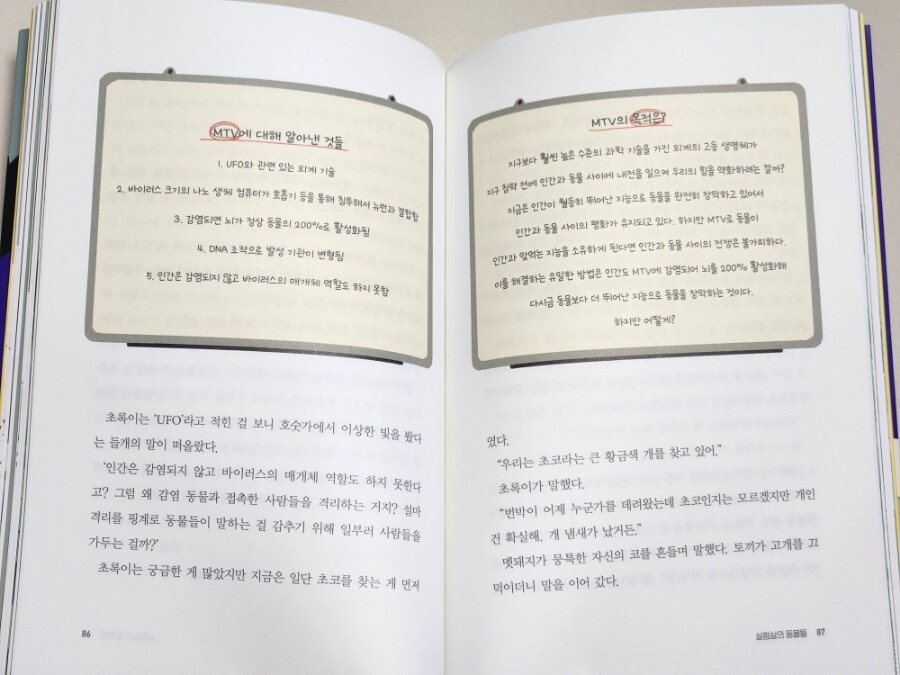 MTV에 대해 알아낸 것들
1. UFO와 관련 있는 외계 기술
2. 바이러스 크기의 나노 생체 컴퓨터가 호흡기 등을 통해 침투해서 뉴런과 결합함
3. 감염되면 뇌가 정상 동물의 200%로 활성화됨
4. DNA 조작으로 발성 기관이 변형됨
5. 인간은 감염되지 않고 바이러스의 매개체 역할도 하지 못함
초록이는 ‘UFO’라고 적힌 걸 보니 호숫가에서 이상한 빛을 봤다
는 들개의 말이 떠올랐다.
‘인간은 감염되지 않고 바이러스의 매개체 역할도 하지 못한다
고? 그럼 왜 감염 동물과 접촉한 사람들을 격리하는 거지? 설마
격리를 핑계로 동물들이 말하는 걸 감추기 위해 일부러 사람들을
가두는 걸까?’
초록이는 궁금한 게 많았지만 지금은 일단 초코를 찾는 게 먼저
86
MTV의 목적은?
지구보다 훨씬 높은 수준의 과학 기술을 가진 외계의 고등 생명체가
지구 침략 전에 인간과 동물 사이에 내전을 일으켜 우리의 힘을 약화하려는 걸까?
지금은 인간이 월등히 뛰어난 지능으로 동물을 완전히 장악하고 있어서
인간과 동물 사이의 평화가 유지되고 있다. 하지만 MTV로 동물이
인간과 맞먹는 지능을 소유하게 된다면 인간과 동물 사이의 전쟁은 불가피하다.
이를 해결하는 유일한 방법은 인간도 MTV에 감염되어 뇌를 200% 활성화해
다시금 동물보다 더 뛰어난 지능으로 동물을 장악하는 것이다.
하지만 어떻게?
였다.
“우리는 초코라는 큰 황금색 개를 찾고 있어.”
초록이가 말했다.
“번박이 어제 누군가를 데려왔는데 초코인지는 모르겠지만 개인
건 확실해. 개 냄새가 났거든.”
멧돼지가 뭉툭한 자신의 코를 흔들며 말했다. 토끼가 고개를 끄
덕이더니 말을 이어 갔다.
실험실의 동물들 87